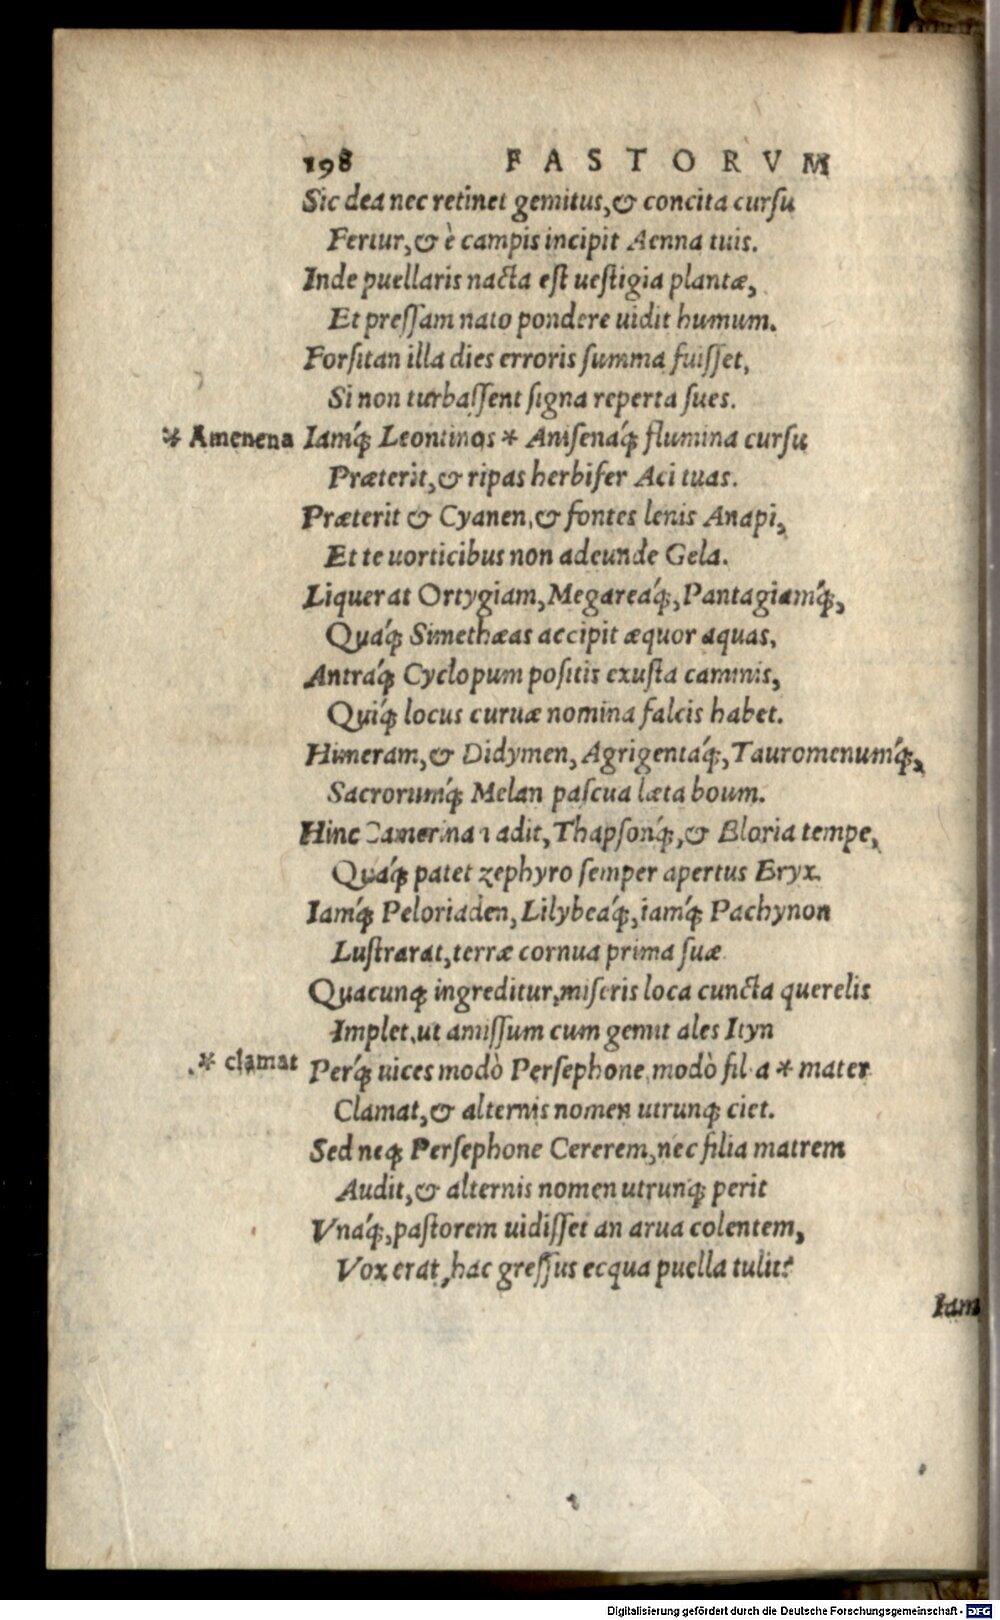 198 FASTORVM
Sic dea nec retinet gemitus, & concita cursu
Fertur, & è campis incipit Aenna tuis.
Inde puellaris nacta est uestigia plantæ,
Et pressam nato pondere uidit humum.
Forsitan illa dies erroris summa fuisset,
Si non turbassent signa reperta sues.
* Amenena Iamq́; Leontinos * Amsenaq́; flumina cursu
Præterit, & ripas herbifer Aci tuas.
Præterit & Cyanen, & fontes lenis Anapi,
Et te uorticibus non adeunde Gela.
Liquerat Ortygiam, Megareaq́;, Pantagiamq́;,
Quaq́; Simethæas accipit æquor aquas,
Antraq́; Cyclopum positis exusta caminis,
Quiq́; locus curuæ nomina falcis habet.
Himeram, & Didymen, Agrigentaq́;, Tauromenumq́;,
Sacrorumq́; Melan pascua læta boum.
Hinc Camerina adit, Thapsonq́;, & Eloria tempe,
Quaq́; patet zephyro semper apertus Eryx.
Iamq́; Peloriaden, Lilybeaq́;, iamq́; Pachynon
Lustrarat, terræ cornua prima suæ
Quacunq; ingreditur, miseris loca cuncta querelis
Implet, ut amissum cum gemit ales Ityn
* clamat Perq́; uices modò Persephone, modò filia * mater
Clamat, & alternis nomen utrunq; ciet.
Sed neq; Persephone Cererem, nec filia matrem
Audit, & alternis nomen utrunq; perit
Vnaq́;, pastorem uidisset an arua colentem,
Vox erat, hac gressus ecqua puella tulit?
Iam
Digitalisierung gefördert durch die Deutsche Forschungsgemeinschaft - DFG